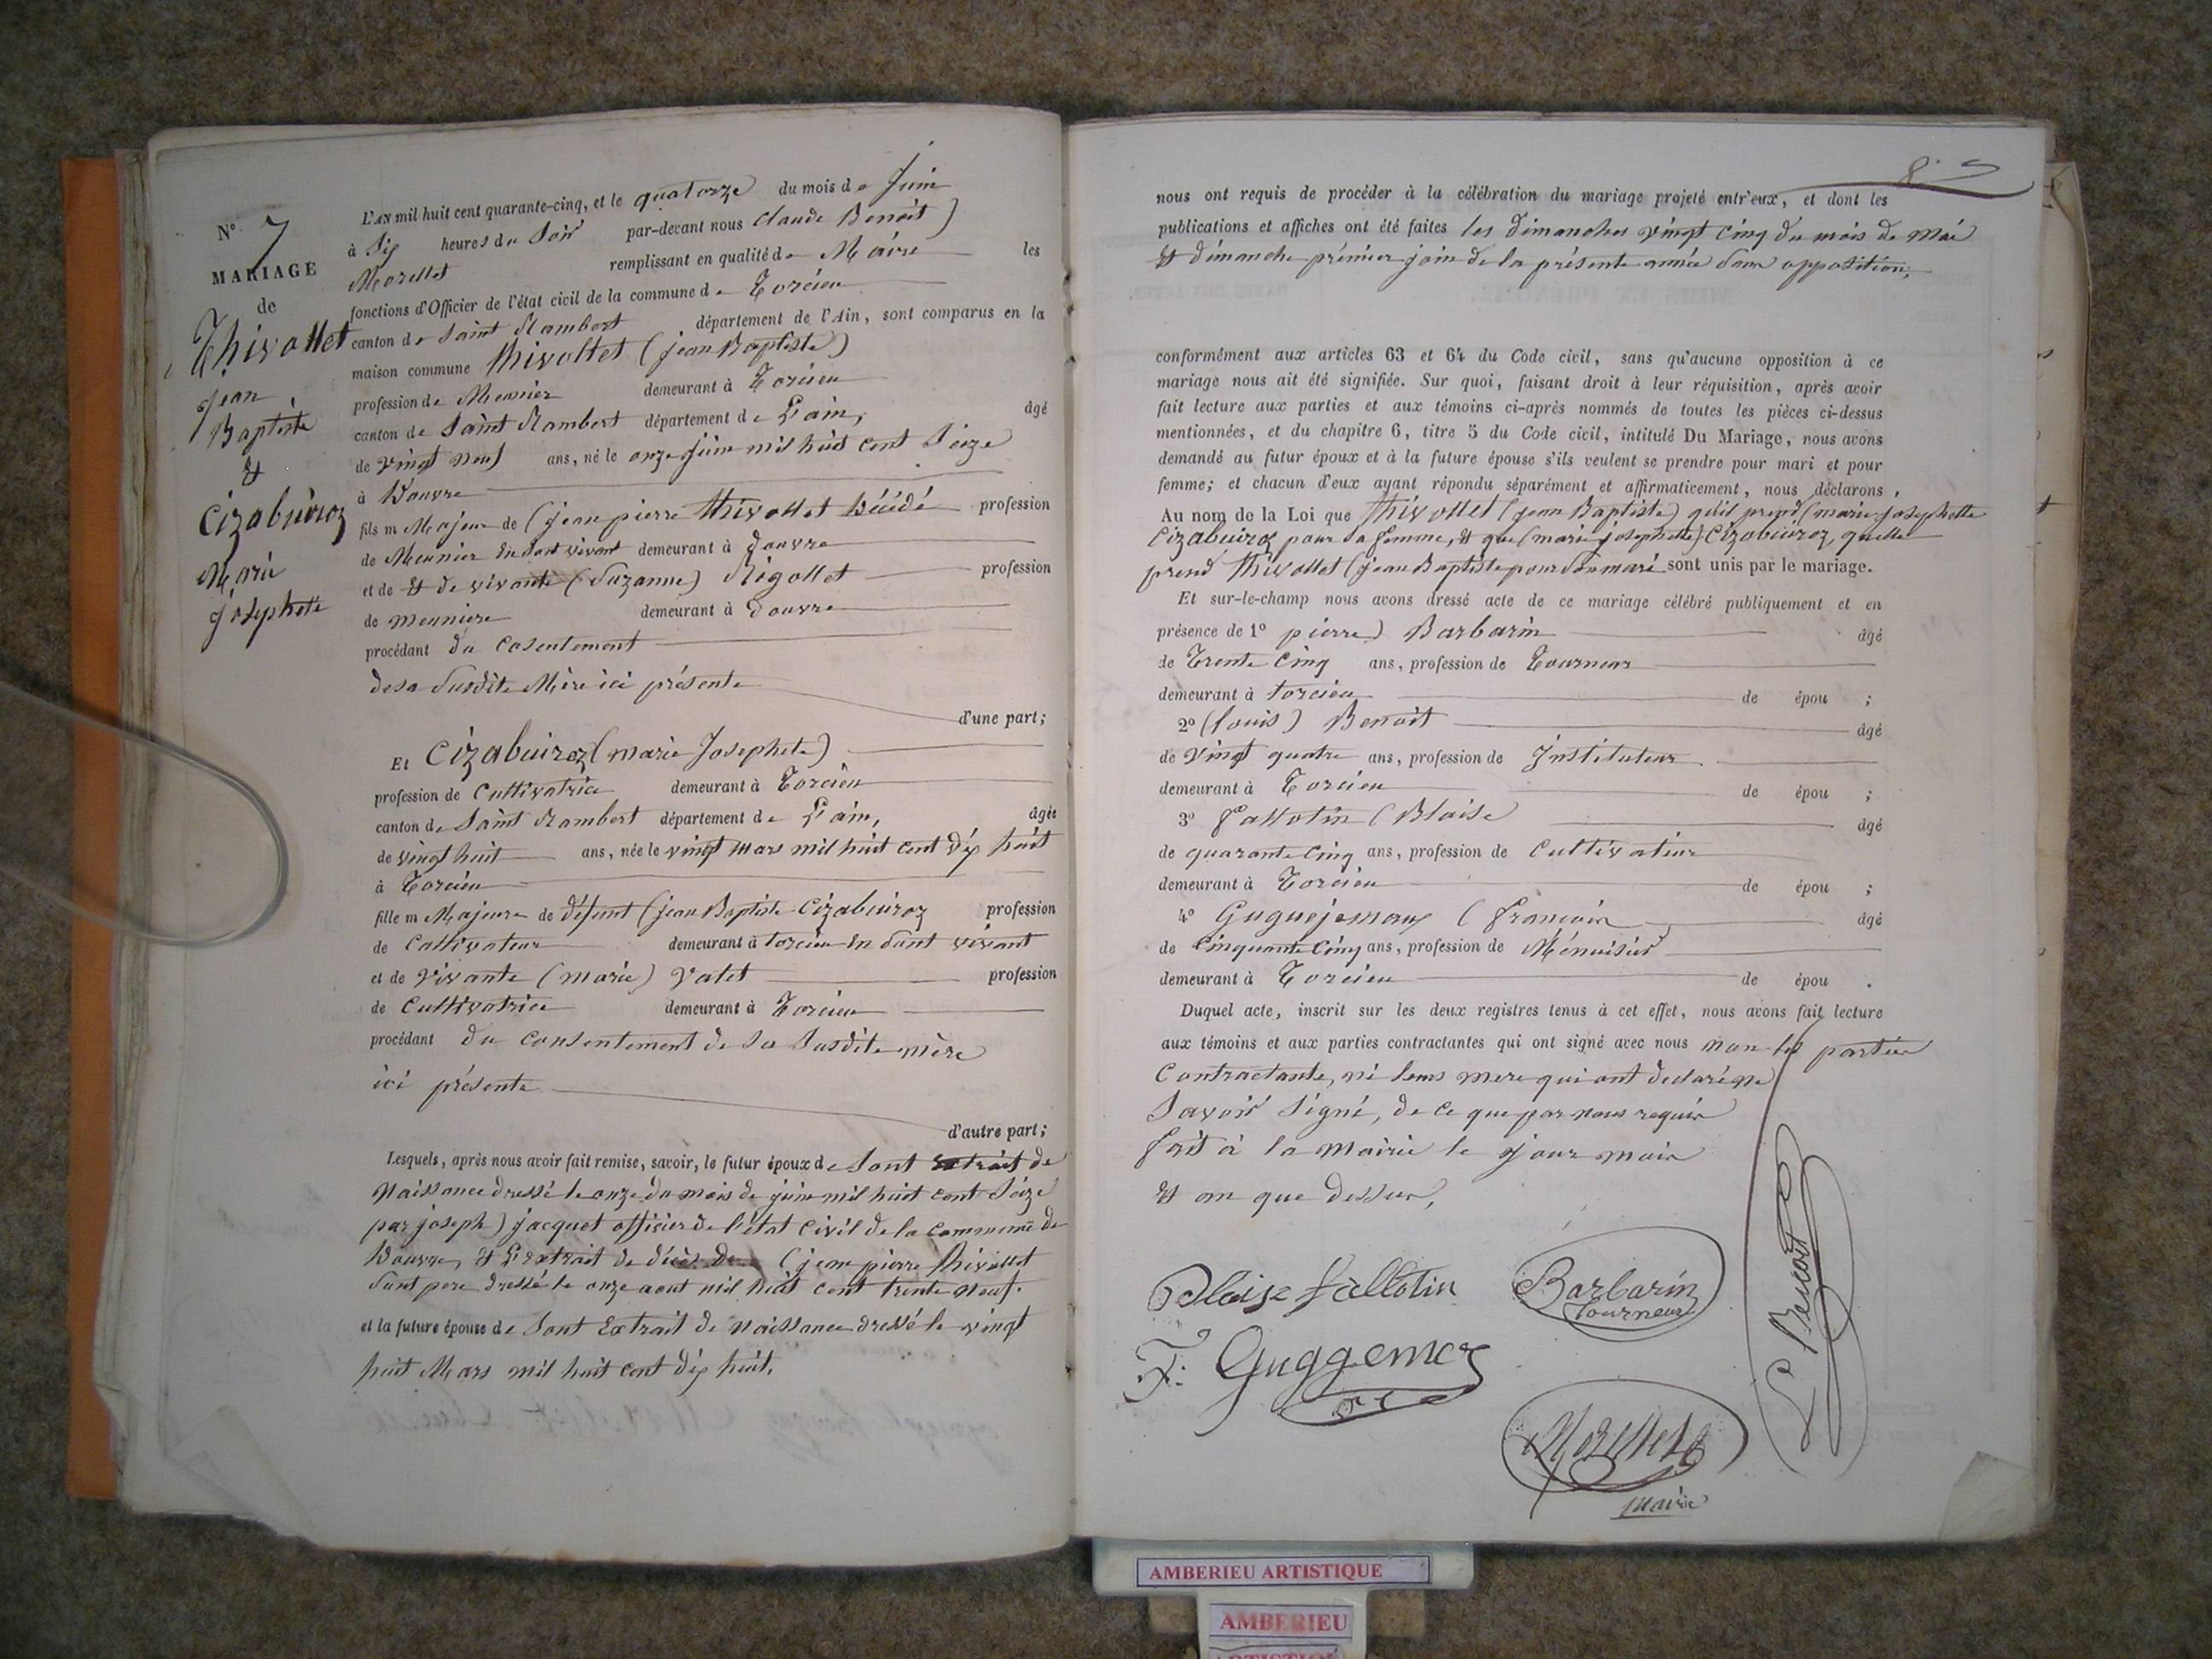 N° 7
MARIAGE
de
Thivollet
Jean
Baptiste
et
Cizabuiroz
Marie
Josephete
L'AN mil huit cent quarante-cinq, et le quatorze du mois de Juin
à Six heures du Soir par-devant nous Claude Benoit)
Morellet remplissant en qualité de Maire les
fonctions d'Officier de l'état civil de la commune de Torcieu
canton de Saint Rambert département de l'Ain, sont comparus en la
maison commune Thivollet (jean Baptiste)
profession de Meunier demeurant à Torcieu
canton de Saint Rambert département de L'ain, âgé
de vingt neuf ans, né le onze juin mil huit cent Seize
à Douvre
fils m Majeur de (jean pierre Thivollet Décédé profession
de Meunier En Sont vivant demeurant à douvre
et de Et de vivante (Suzanne) Rigollet profession
de meuniere demeurant à douvre
procédant du cosentement
de sa Susdite Mère ici présente
d'une part;
Et Cizabuiroz (marie Josephete)
profession de Cultivatrice demeurant à Torcieu
canton de Saint Rambert département de L'ain, âgée
de vingt huit ans, née le vingt mars mil huit cent dix huit
à Torcieu
fille m Majeure de défunt (jean Baptiste Cizabuiroz profession
de Cultivateur demeurant à torcieu En Sont vivant
et de vivante (marie) Valet profession
de Cultivatrice demeurant à Torcieu
procédant du consentement de Sa Susdite mère
ici présente
d'autre part;
Lesquels, après nous avoir fait remise, savoir, le futur époux de Sont Extrait de
Naissance dressé le onze du mois de juin mil huit cent Seize
par joseph) jacquet officier de l'état civil de la commune de
Douvre, et L'Extrait de décès de (jean pierre Thivollet
Sont pere dressé le onze aout mil huit cent trente neuf.
et la future épouse de Sont Extrait de Naissance dressé le vingt
huit Mars mil huit cent dix huit.
8
nous ont requis de procéder à la célébration du mariage projeté entr'eux, et dont les
publications et affiches ont été faites les dimanches vingt cinq du mois de Mai
Et dimanche prémier join de la présente année Sans opposition;
conformément aux articles 63 et 64 du Code civil, sans qu'aucune opposition à ce
mariage nous ait été signifiée. Sur quoi, faisant droit à leur réquisition, après avoir
fait lecture aux parties et aux témoins ci-après nommés de toutes les pièces ci-dessus
mentionnées, et du chapitre 6, titre 5 du Code civil, intitulé Du Mariage, nous avons
demandé au futur époux et à la future épouse s'ils veulent se prendre pour mari et pour
femme; et chacun d'eux ayant répondu séparément et affirmativement, nous déclarons,
Au nom de la Loi que Thivollet (jean Baptiste) qu'il prend (marie josephette
Cizabuiroz pour Sa femme, Et que (marie josephette) Cizabuiroz, quelle
prend Thivollet (jean Baptiste pour Son mari sont unis par le mariage.
Et sur-le-champ nous avons dressé acte de ce mariage célébré publiquement et en
présence de 1° pierre) Barbarin âgé
de Trente Cinq ans, profession de Tourneur
demeurant à torcieu de épou ;
2° (louis) Benoit âgé
de Vingt quatre ans, profession de Instituteur
demeurant à Torcieu de épou ;
3° fallotin (Blaise âgé
de quarante Cinq ans, profession de Cultivateur
demeurant à Torcieu de épou ;
4° (francois âgé
de Cinquante Cinq ans, profession de Ménuisier
demeurant à Torcieu de épou .
Duquel acte, inscrit sur les deux registres tenus à cet effet, nous avons fait lecture
aux témoins et aux parties contractantes qui ont signé avec nous non les parties
Contractante, ni leurs mere qui ont declaré ne
Savoir Signé, de ce que par nous requis
fait à la Mairie le jour mois
Et an que dessus,
Blaise fallotin
Barbarin
Tourneur
F. Guggemos
L Benoit
Morellet
Maire
AMBERIEU ARTISTIQUE
AMBERIEU
ARTISTIQUE